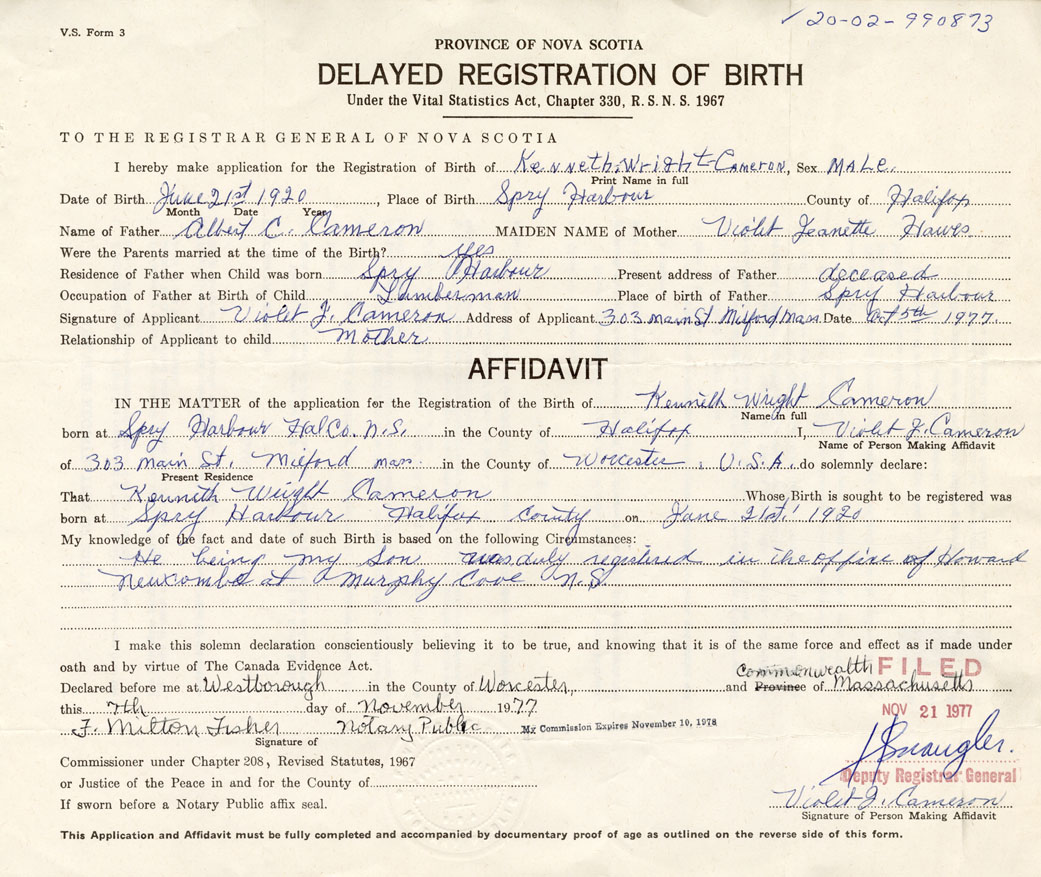 ✓20-02-990873
V.S. Form 3
PROVINCE OF NOVA SCOTIA
DELAYED REGISTRATION OF BIRTH
Under the Vital Statistics Act, Chapter 330, R. S. N. S. 1967
TO THE REGISTRAR GENERAL OF NOVA SCOTIA
I hereby make application for the Registration of Birth of Kenneth Wright Cameron, Sex MALE.
Print Name in full
Date of Birth June 21st 1920, Place of Birth Spry Harbour County of Halifax
Month Date Year
Name of Father Albert C. Cameron MAIDEN NAME of Mother Violet Jeanette Hawes
Were the Parents married at the time of the Birth? yes
Residence of Father when Child was born Spry Harbour Present address of Father deceased
Occupation of Father at Birth of Child Lumberman Place of birth of Father Spry Harbour
Signature of Applicant Violet J. Cameron Address of Applicant 303 main St Milford Mass. Date Oct 5th 1977.
Relationship of Applicant to child Mother
AFFIDAVIT
IN THE MATTER of the application for the Registration of the Birth of Kenneth Wright Cameron
Name in full
born at Spry Harbour Hal Co. N.S. in the County of Halifax I, Violet J. Cameron
Name of Person Making Affidavit
of 303 main St. Milford mass. in the County of Worcester, U.S.A. do solemnly declare:
Present Residence
That Kenneth Wright Cameron Whose Birth is sought to be registered was
born at Spry Harbour Halifax County on June 21st. 1920
My knowledge of the fact and date of such Birth is based on the following Circumstances:
He being my Son was duly registired in the office of Howard
Newcombe at Murphy Cove N.S.
I make this solemn declaration conscientiously believing it to be true, and knowing that it is of the same force and effect as if made under
oath and by virtue of The Canada Evidence Act.
Commonwealth FILED
Declared before me at Westborough in the County of Worcester, and Province of Massachusetts
this 7th day of November 1977
NOV 21 1977
F. Milton Fisher Notary Public My Commission Expires November 10, 1978
Signature of
Commissioner under Chapter 208, Revised Statutes, 1967
Deputy Registrar General
or Justice of the Peace in and for the County of
Violet J. Cameron
If sworn before a Notary Public affix seal.
Signature of Person Making Affidavit
This Application and Affidavit must be fully completed and accompanied by documentary proof of age as outlined on the reverse side of this form.